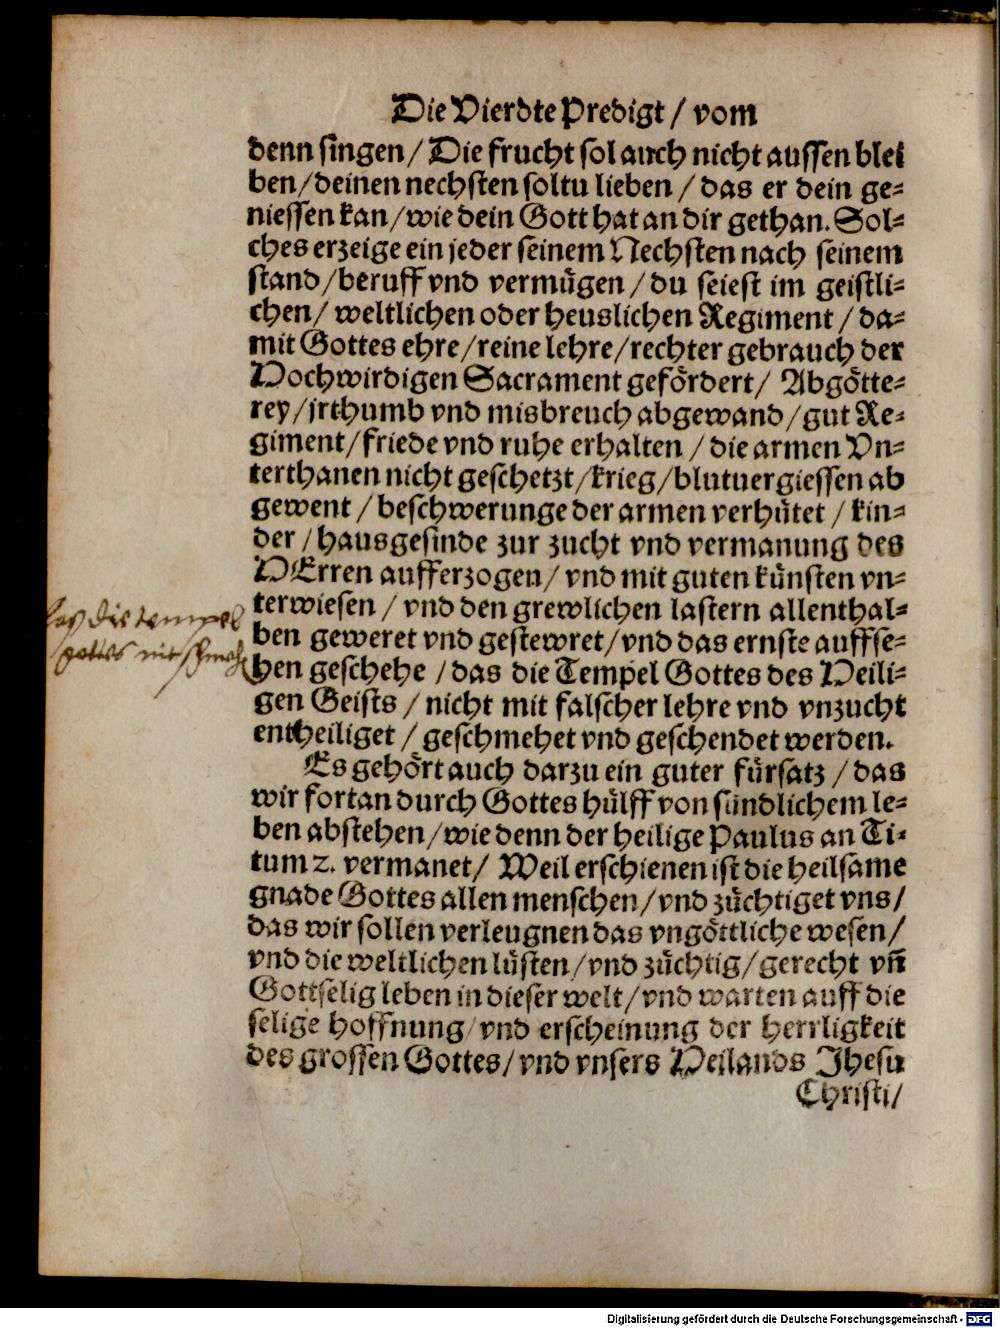 Die Vierdte Predigt / vom
denn singen / Die frucht sol auch nicht aussen blei
ben / deinen nechsten soltu lieben / das er dein ge-
niessen kan / wie dein Gott hat an dir gethan. Sol-
ches erzeige ein jeder seinem Nechsten nach seinem
stand / beruff vnd vermügen / du seiest im geistli-
chen / weltlichen oder heuslichen Regiment / da-
mit Gottes ehre / reine lehre / rechter gebrauch der
Hochwirdigen Sacrament gefördert / Abgötte-
rey / jrthumb vnd misbreuch abgewand / gut Re-
giment / friede vnd ruhe erhalten / die armen Vn-
terthanen nicht geschetzt / krieg / blutuergiessen ab
gewent / beschwerunge der armen verhütet / kin-
der / hausgesinde zur zucht vnd vermanung des
HErren aufferzogen / vnd mit guten künsten vn-
terwiesen / vnd den grewlichen lastern allenthal-
ben geweret vnd gestewret / vnd das ernste auffse-
hen geschehe / das die Tempel Gottes des Heili-
gen Geists / nicht mit falscher lehre vnd vnzucht
entheiliget / geschmehet vnd geschendet werden.
Es gehört auch darzu ein guter fürsatz / das
wir fortan durch Gottes hülff von sündlichem le-
ben abstehen / wie denn der heilige Paulus an Ti-
tum 2. vermanet / Weil erschienen ist die heilsame
gnade Gottes allen menschen / vnd züchtiget vns /
das wir sollen verleugnen das vngöttliche wesen /
vnd die weltlichen lüsten / vnd züchtig / gerecht vñ
Gottselig leben in dieser welt / vnd warten auff die
selige hoffnung / vnd erscheinung der herrligkeit
des grossen Gottes / vnd vnsers Heilands Jhesu
Christi /
die tempel
gottes nit
Digitalisierung gefördert durch die Deutsche Forschungsgemeinschaft - DFG